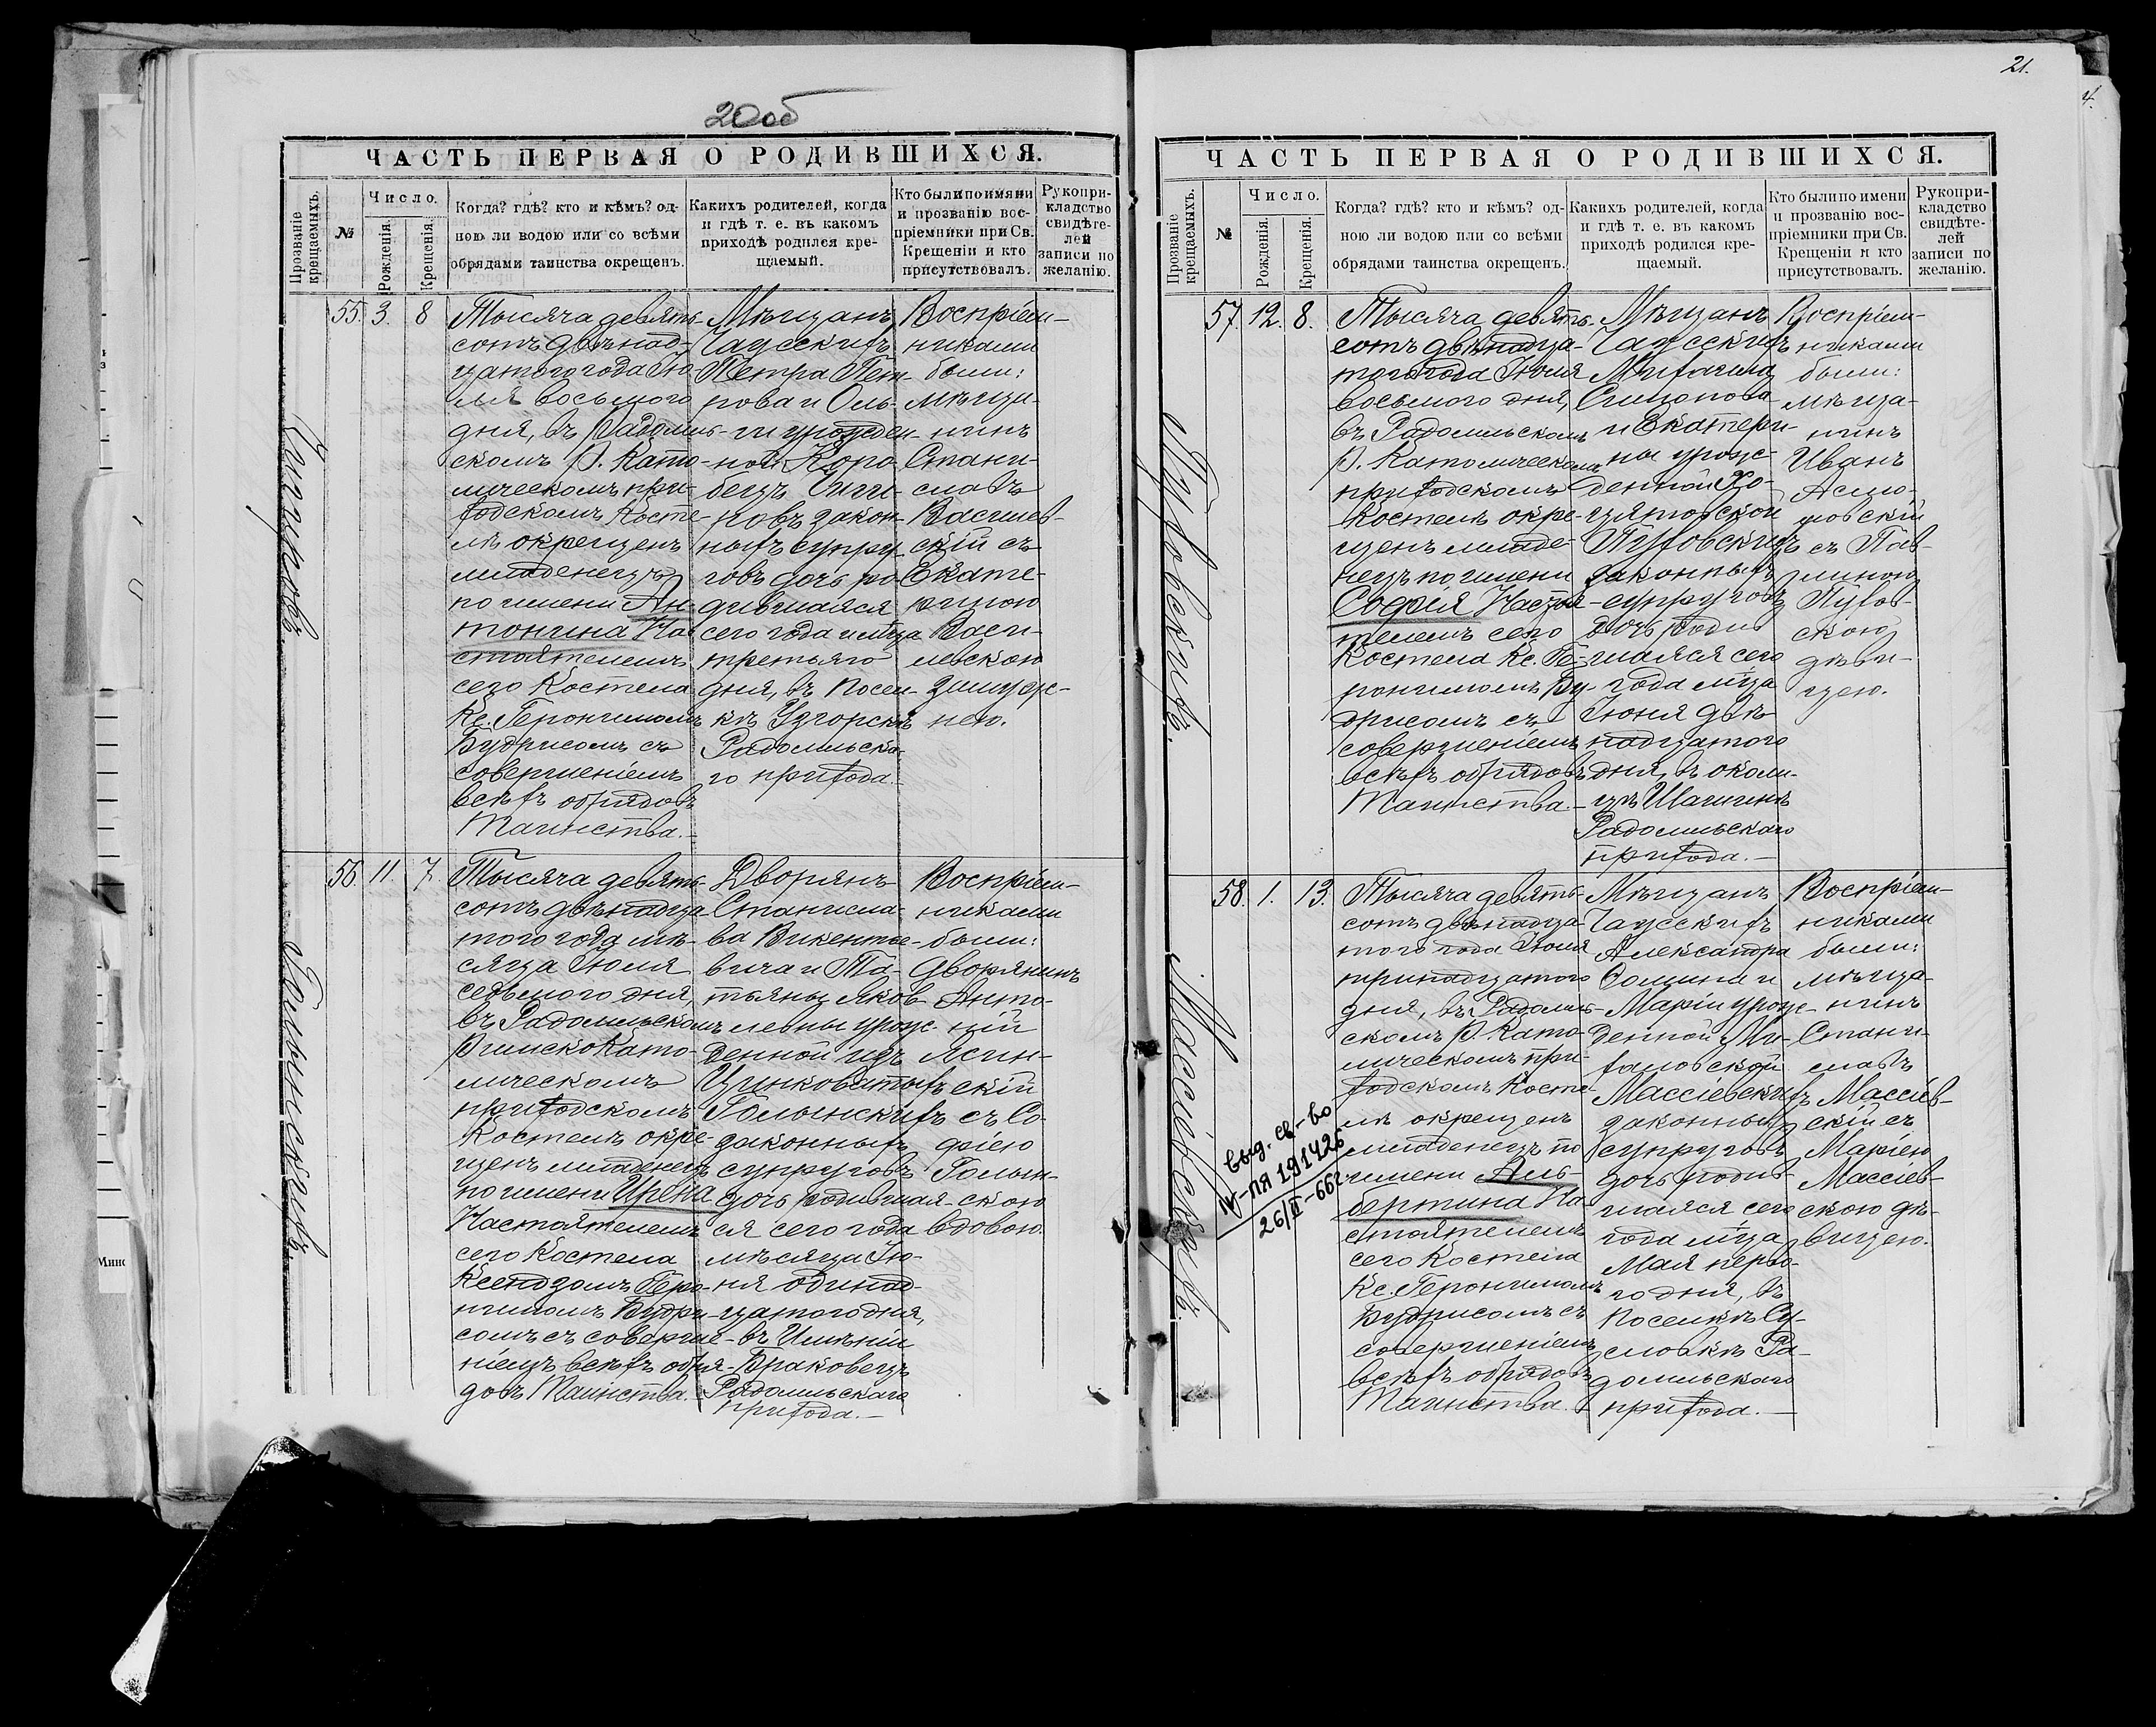 20об
ЧАСТЬ ПЕРВАЯ О РОДИВШИХСЯ.
Прозваніе крещаемыхъ.
№
Число.
Рожденія.
Крещенія.
Когда? гдѣ? кто и кѣмъ? од-
ною ли водою или со всѣми
обрядами таинства окрещенъ.
Какихъ родителей, когда
и гдѣ т. е. въ какомъ
приходѣ родился кре-
щаемый.
Кто были по имяни
и прозванію вос-
пріемники при Св.
Крещеніи и кто
присутствовалъ.
Рукопри-
кладство
свидѣте-
лей
записи по
желанію.
55. 3. 8
Тысяча девять-
сотъ двѣнад-
цатого года Ію-
ля восьмого
дня, въ Радомль-
скомъ Р. Като-
лическомъ при-
ходскомъ Косте-
лѣ окрещенъ
младенецъ
по имени Ан-
тонина На-
стоятелемъ
сего Костела
Кс. Геронимомъ
Будрисомъ съ
совершеніемъ
всѣхъ обрядовъ
Таинства.-
Мѣщанъ
Чаусскихъ
Петра Пет-
рова и Оль-
ги урожден-
ной Коро-
бецъ
законныхъ супру-
говъ дочь ро-
дившаяся
сего года мѣсяца
третьяго
дня, въ Посел-
кѣ Узгорскѣ
Радомльска-
го прихода.-
Воспріем-
никами
были:
мѣща-
нинъ
Стани-
славъ
Васплев-
скій съ
Екате-
риною
Васи-
левскою
замуж-
нею.
56. 11. 7.
Гольинскихъ.
Тысяча девять-
сотъ двѣнадца-
того года мѣ-
сяца Іюля
седьмого дня,
въ Радомльскомъ
Римско Като-
лическомъ
приходскомъ
Костелѣ окре-
щенъ младенецъ
по имени Ирена
Настоятелемъ
сего Костела
Ксендзомъ Геро-
нимомъ Будри-
сомъ съ соверше-
ніемъ всѣхъ обря-
довъ Таинства.-
Дворянъ
Станисла-
ва Викентье-
вича и Та-
тьяны Яков-
левны урож-
денной изъ
Цунковатыхъ
Голынскихъ
законныхъ
супруговъ
дочь родившая-
ся сего года
мѣсяца Ію-
ня одинад-
цатого дня,
въ Имѣніи
Браковецъ
Радомльскаго
прихода.-
Воспріем-
никами
были:
дворянинъ
Анто-
ній
Ясин-
скій
съ Со-
фіею
Голын-
скою
вдовою.
21.
ЧАСТЬ ПЕРВАЯ О РОДИВШИХСЯ.
Прозваніе крещаемыхъ.
№
Число.
Рожденія.
Крещенія.
Когда? гдѣ? кто и кѣмъ? од-
ною ли водою или со всѣми
обрядами таинства окрещенъ.
Какихъ родителей, когда
и гдѣ т. е. въ какомъ
приходѣ родился кре-
щаемый.
Кто были по имени
и прозванію вос-
пріемники при Св.
Крещеніи и кто
присутствовалъ.
Рукопри-
кладство
свидѣте-
лей
записи по
желанію.
57. 12. 8.
Пуховскихъ.
Тысяча девять-
сотъ двѣнадца-
того года Іюля
восьмого дня,
въ Радомльскомъ
Р. Католическомъ
приходскомъ
Костелѣ окре-
щенъ младе-
нецъ по имени
Софія Настоя-
телемъ сего
Костела Кс. Ге-
ронимомъ Бу-
дрисомъ съ
совершеніемъ
всѣхъ обрядовъ
Таинства.-
Мѣщанъ
Чаусскихъ
Михаила
и Екатери-
ны урож-
денной
Пуховскихъ
законныхъ
супруговъ
дочь родив-
шаяся сего
года мѣсяца
Іюня двѣ-
надцатого
дня, въ околи-
цѣ Шагинкѣ
Радомльскаго
прихода.-
Воспріем-
никами
были:
мѣща-
нинъ
Иванъ
съ Пав-
линою
Пухов-
скою
дѣви-
цею.
58. 1. 13.
Массіевскихъ.
выд. св-во
IV-ПЯ 191426
26/II-66г
Тысяча девять-
сотъ двѣнадца-
того года Іюля
тринадцатого
дня, въ Радомль-
скомъ Р. Като-
лическомъ при-
ходскомъ Косте-
лѣ окрещенъ
младенецъ по
имени Аль-
бертина На-
стоятелемъ
сего Костела
Кс. Геронимомъ
Будрисомъ съ
совершеніемъ
всѣхъ обрядовъ
Таинства.-
Мѣщанъ
Чаусскихъ
Александра
Фомина и
Маріи урож-
денной Ми-
халовской
Массіевскихъ
законныхъ
супруговъ
дочь родив-
шаяся сего
года мѣсяца
Мая перва-
го дня, въ
Поселкѣ Су-
словкѣ Ра-
домльскаго
прихода.-
Воспріем-
никами
были:
мѣща-
нинъ
Стани-
славъ
Массіев-
скій съ
Маріею
Массіев-
скою дѣ-
вицею.